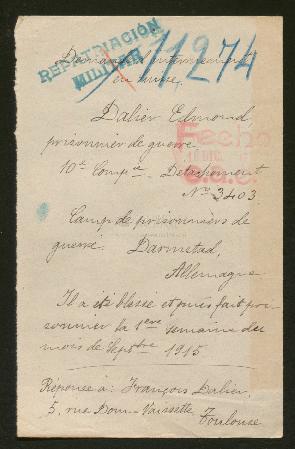 REPATRIACIÓN
MILITAR
11274
Demande d'internement
en Suisse,
Dalier Edmond
prisonnier de guerre
10e Compie - Détachement
No 3403
Fecha
10 DIC.
Camp de prisonniers de
guerre - Darmstad,
Allemagne
Il a été blessé et puis fait pri-
sonnier la 1ere semaine du
mois de Septbre 1915
Réponse à: François Dalier,
5, rue Dom-Vaissette
Toulouse